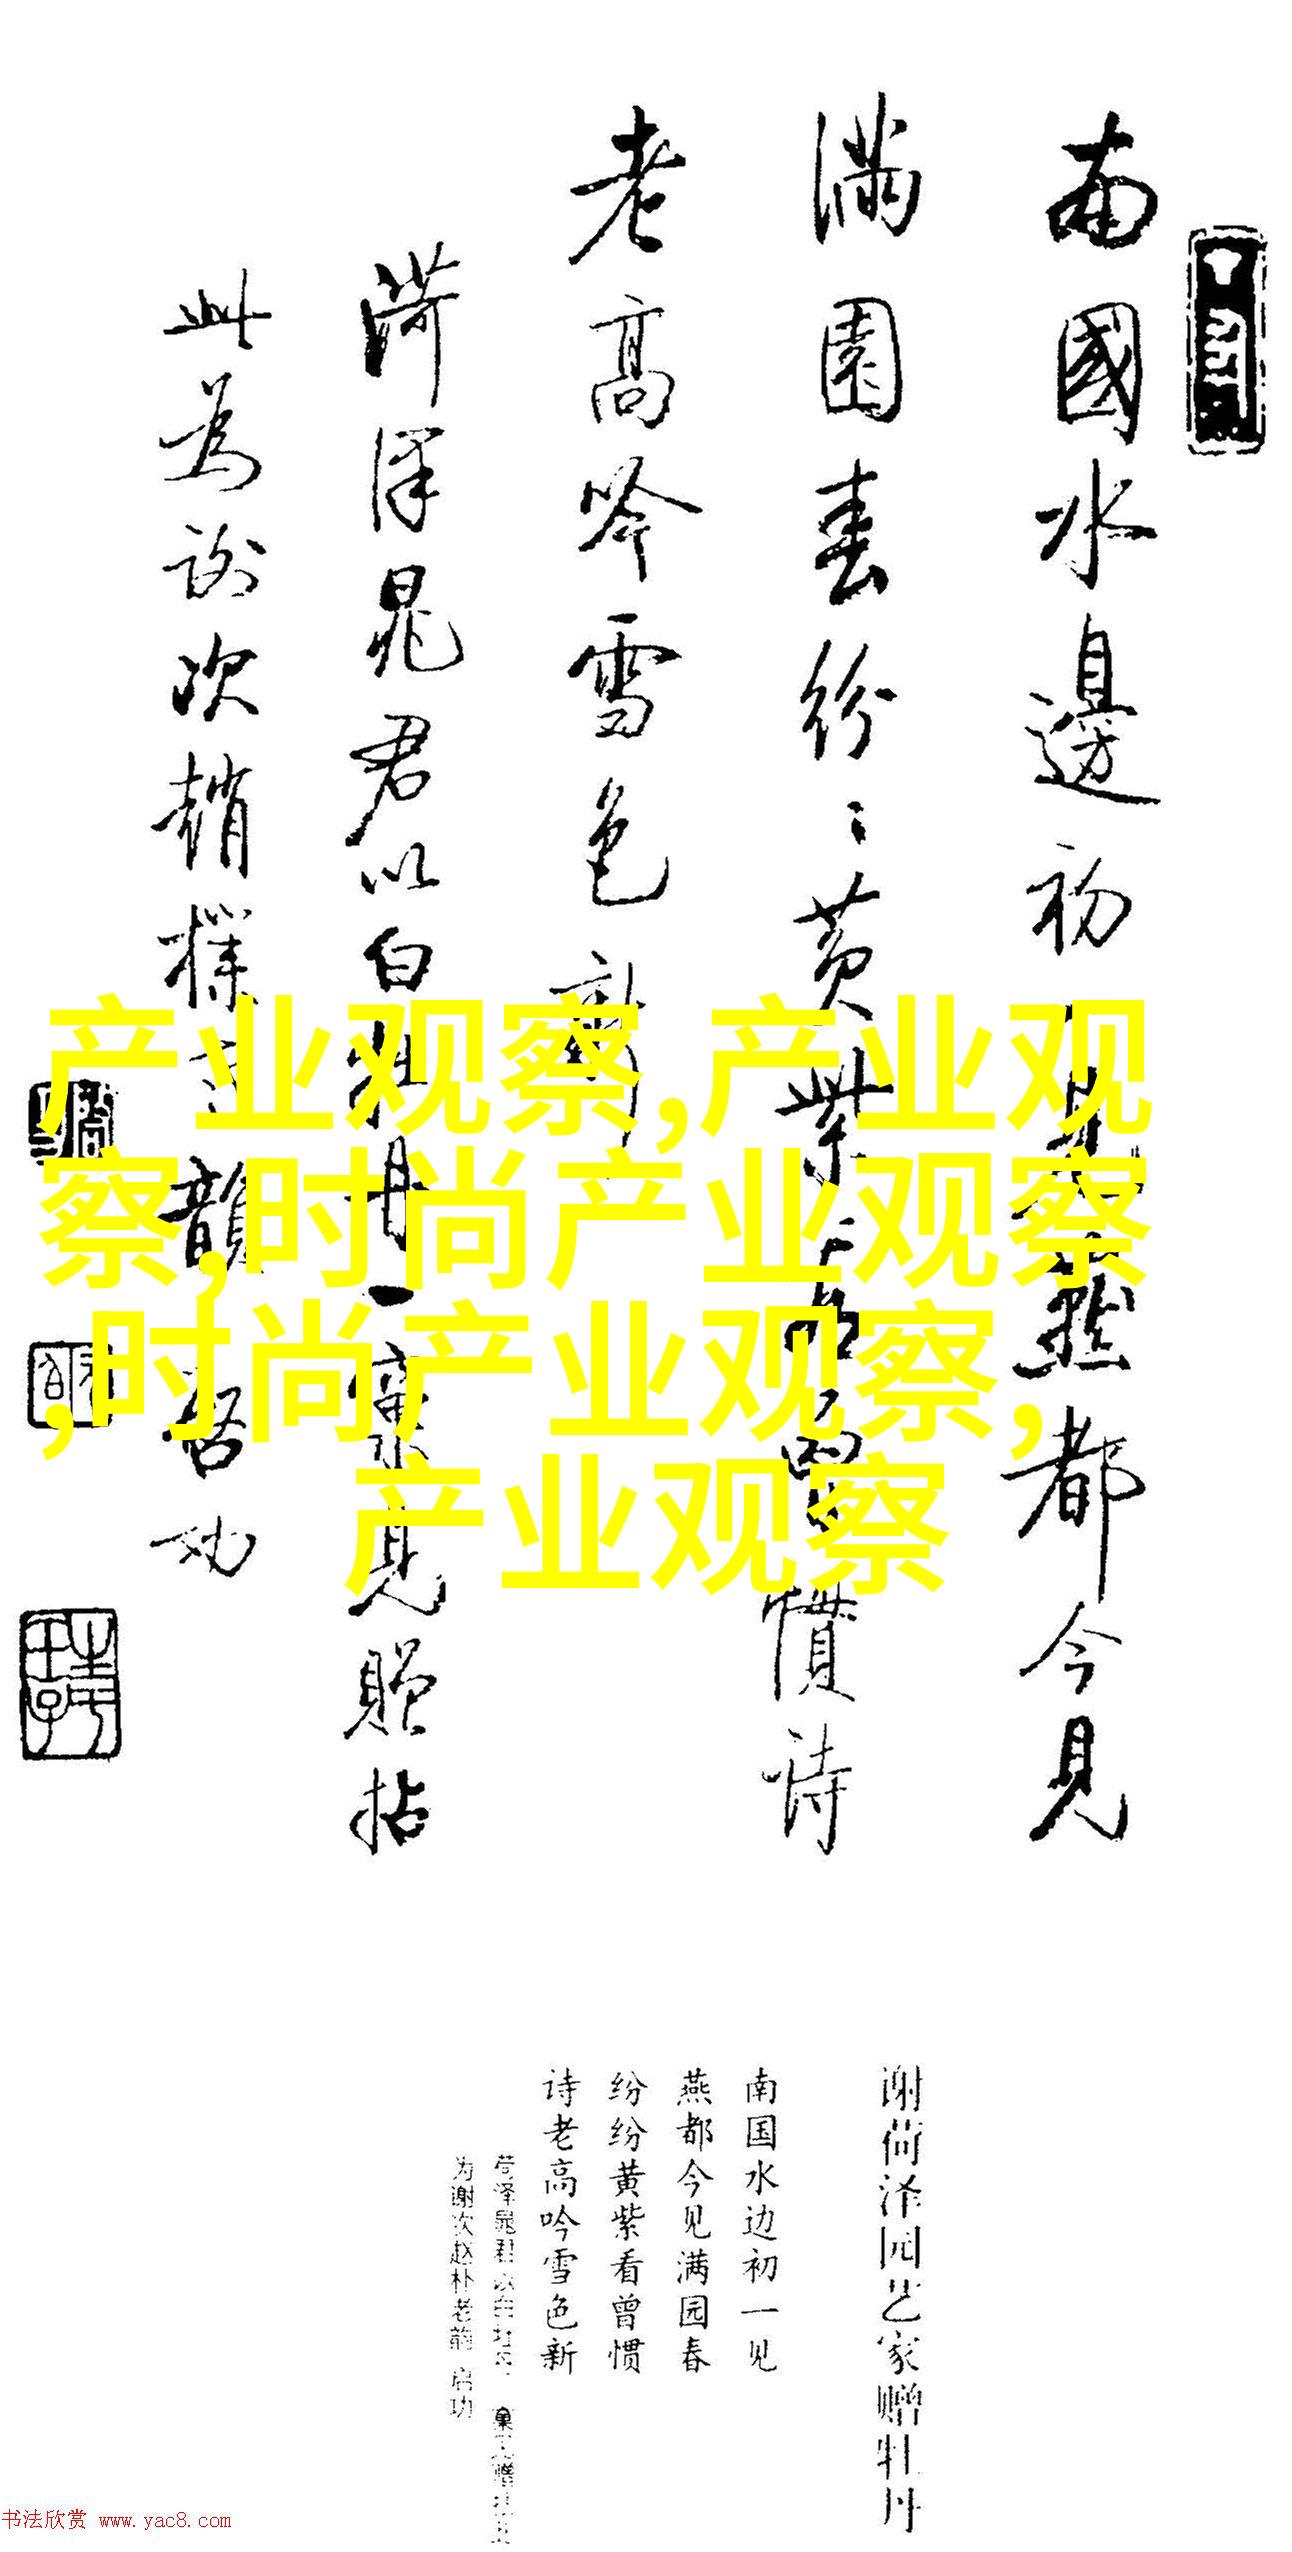 南國水邊初一見燕都今見
滿園春紛〻黃紫〻看曾慣詩
老高吟雪色新
菏澤晁君以白牡丹一棄見贈拈
此為謝次趙樸老韻 啓功
产业观察,产业观
察,时尚产业观察
,时尚产业观察,
产业观察
谢荷泽园艺家赠牡丹
南国水边初一见
燕都今见满园春
纷纷黄紫看曾惯
诗老高吟雪色新
为谢次赵朴老韵 启功
书法欣赏 www.yac8.com